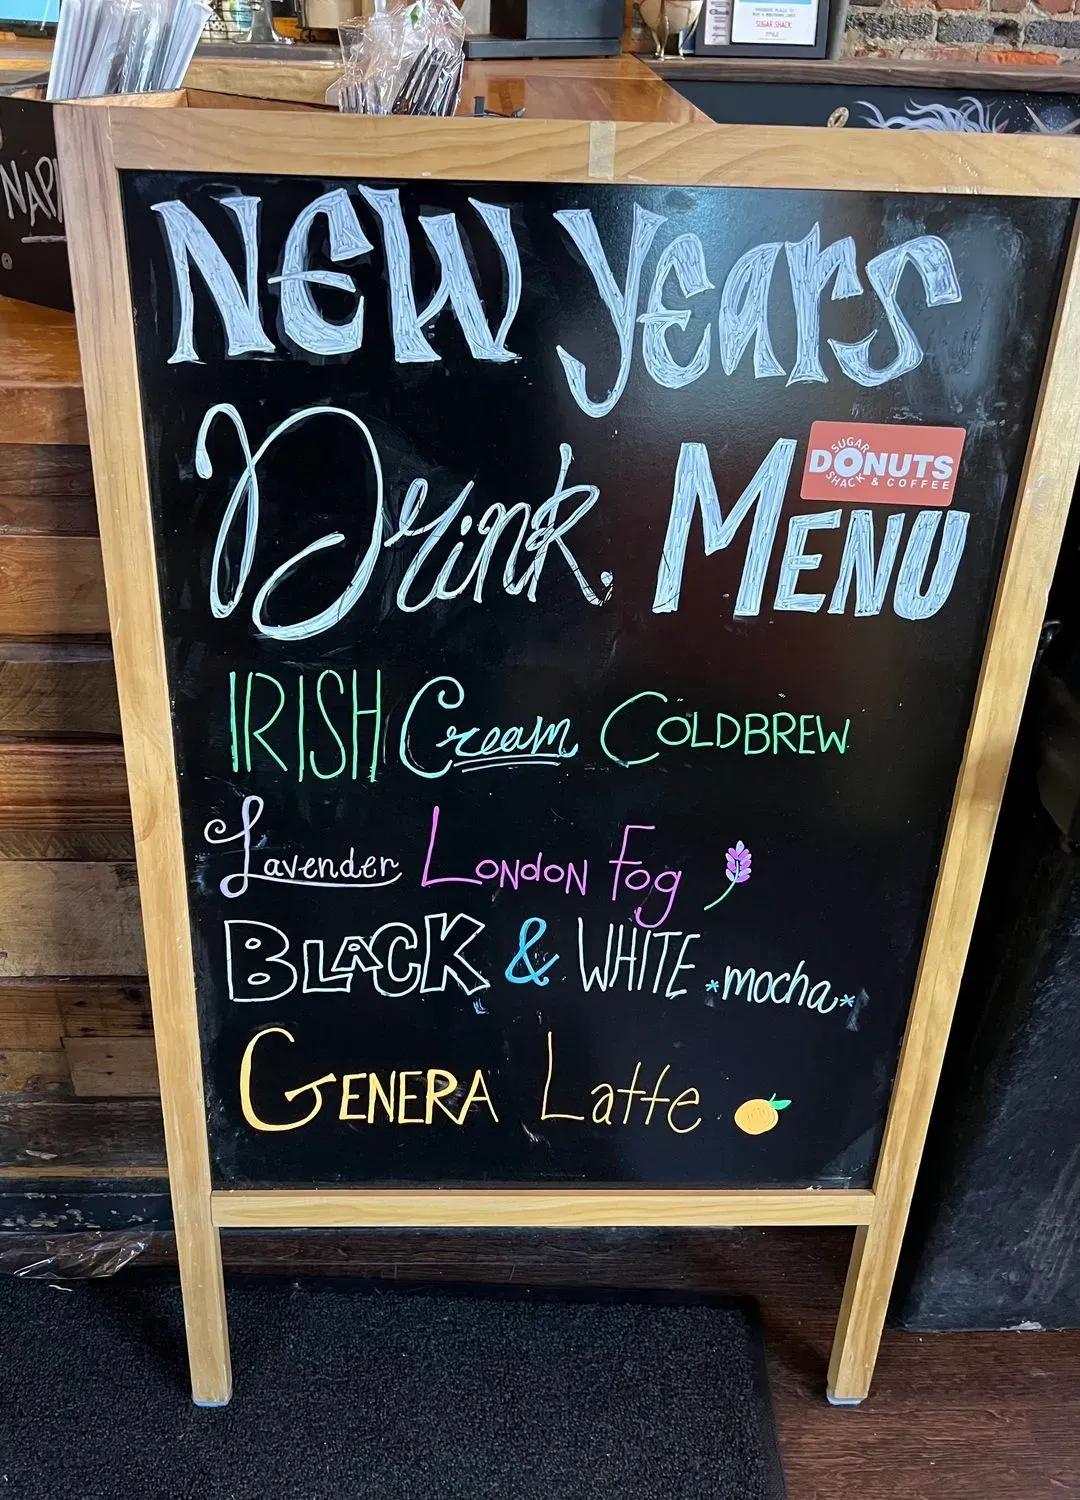 SUGAR SHACK
NAP
NEW Years
Drink MENU
SUGAR
DONUTS
SHACK & COFFEE
IRISH Cream COLDBREW
Lavender LONDON Fog
BLACK & WHITE *mocha*
GENERA Latte